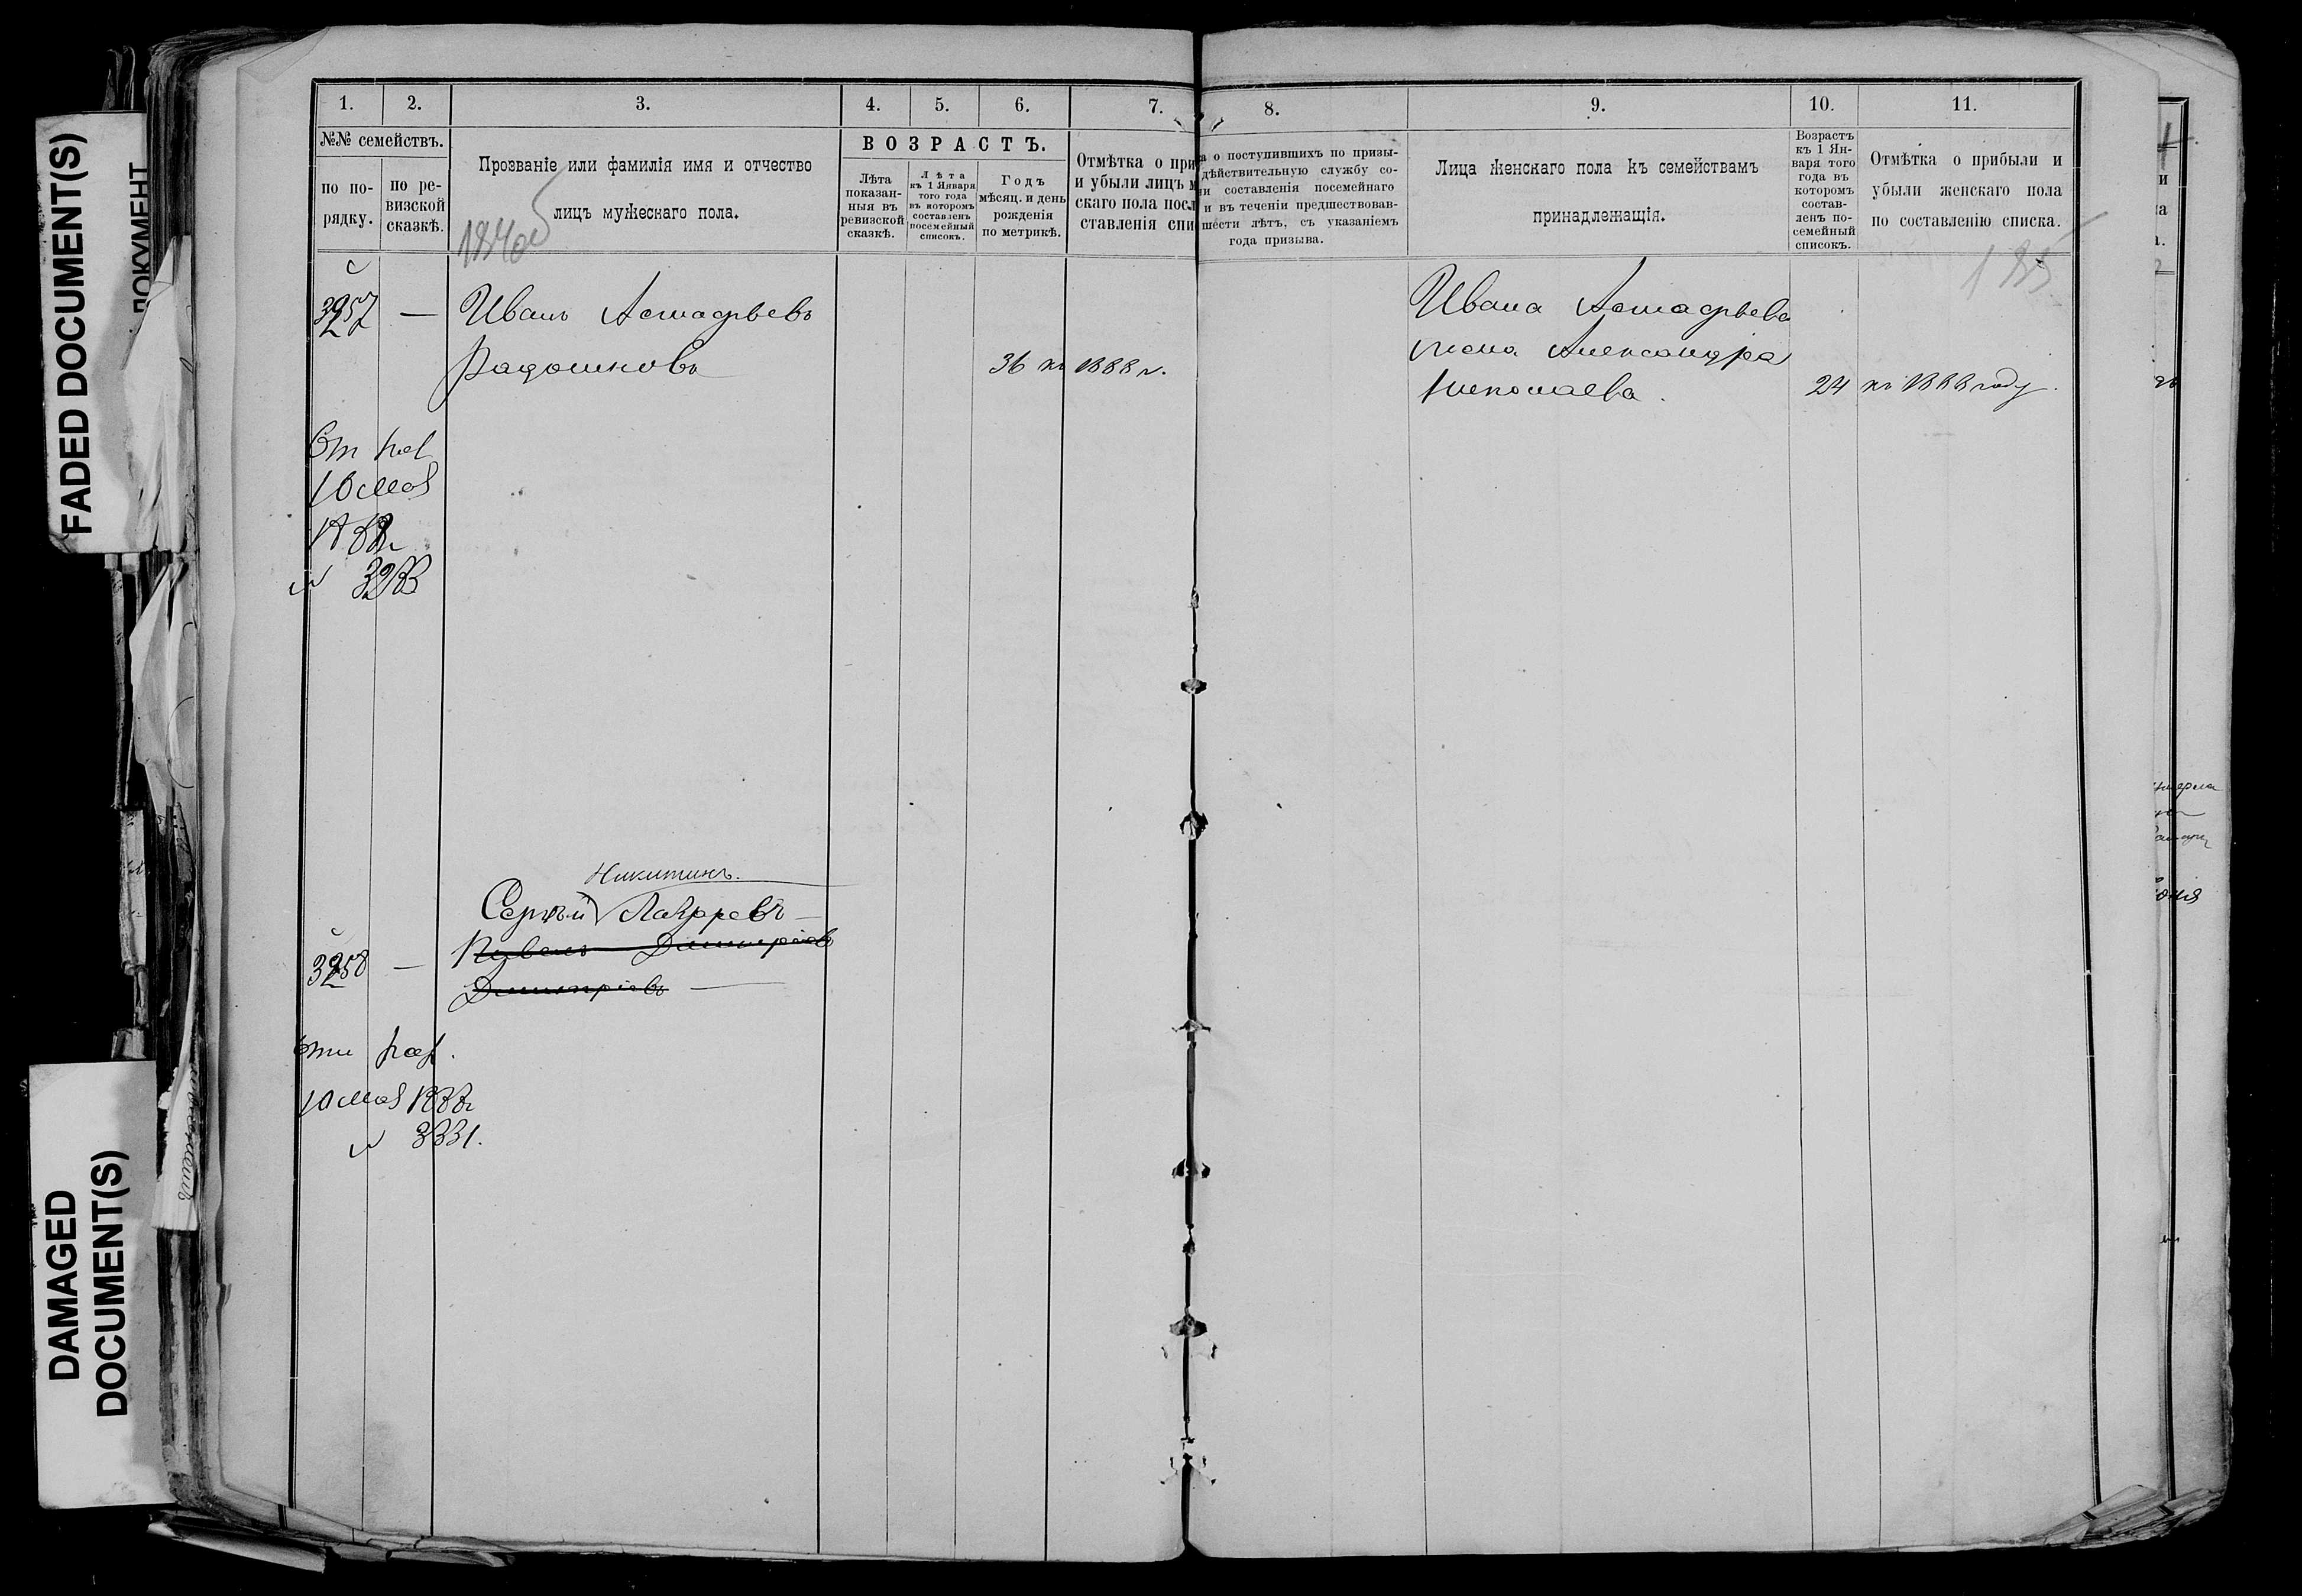 FADED DOCUMENT(S)
ДОКУМЕНТ
DAMAGED
DOCUMENT(S)
1. 2. 3. 4. 5. 6. 7.
№№ семействъ.
по по-
рядку.
по ре-
визской
сказкѣ.
Прозваніе или фамилія имя и отчество
лицъ мужескаго пола.
ВОЗРАСТЪ.
Лѣта
показан-
ныя въ
ревизской
сказкѣ.
Лѣта
къ 1 Января
того года
въ которомъ
составленъ
посемейный
списокъ.
Годъ
мѣсяц. и день
рожденія
по метрикѣ.
Отмѣтка о при
и убыли лицъ м
скаго пола посл
ставленія спи
3257 — Иванъ Астафьевъ
Радошновъ 36 къ 1888 г.
От рап
10 мая
1888г
№ 3283
Никитинъ.
Сергѣй Лазаревъ —
3258 —
Дмитріевъ —
рап.
10 мая 1888г
№ 3331.
8. 9. 10. 11.
а о поступившихъ по призы-
дѣйствительную службу со-
ни составленія посемейнаго
и въ теченіи предшествовав-
шести лѣтъ, съ указаніемъ
года призыва.
Лица женскаго пола къ семействамъ
принадлежащія.
Возрастъ
къ 1 Ян-
варя того
года въ
которомъ
состав-
ленъ по-
семейный
списокъ.
Отмѣтка о прибыли и
убыли женскаго пола
по составленію списка.
185
Ивана Астафьева
жена Александра
Николаева. 24 къ 1888 году.